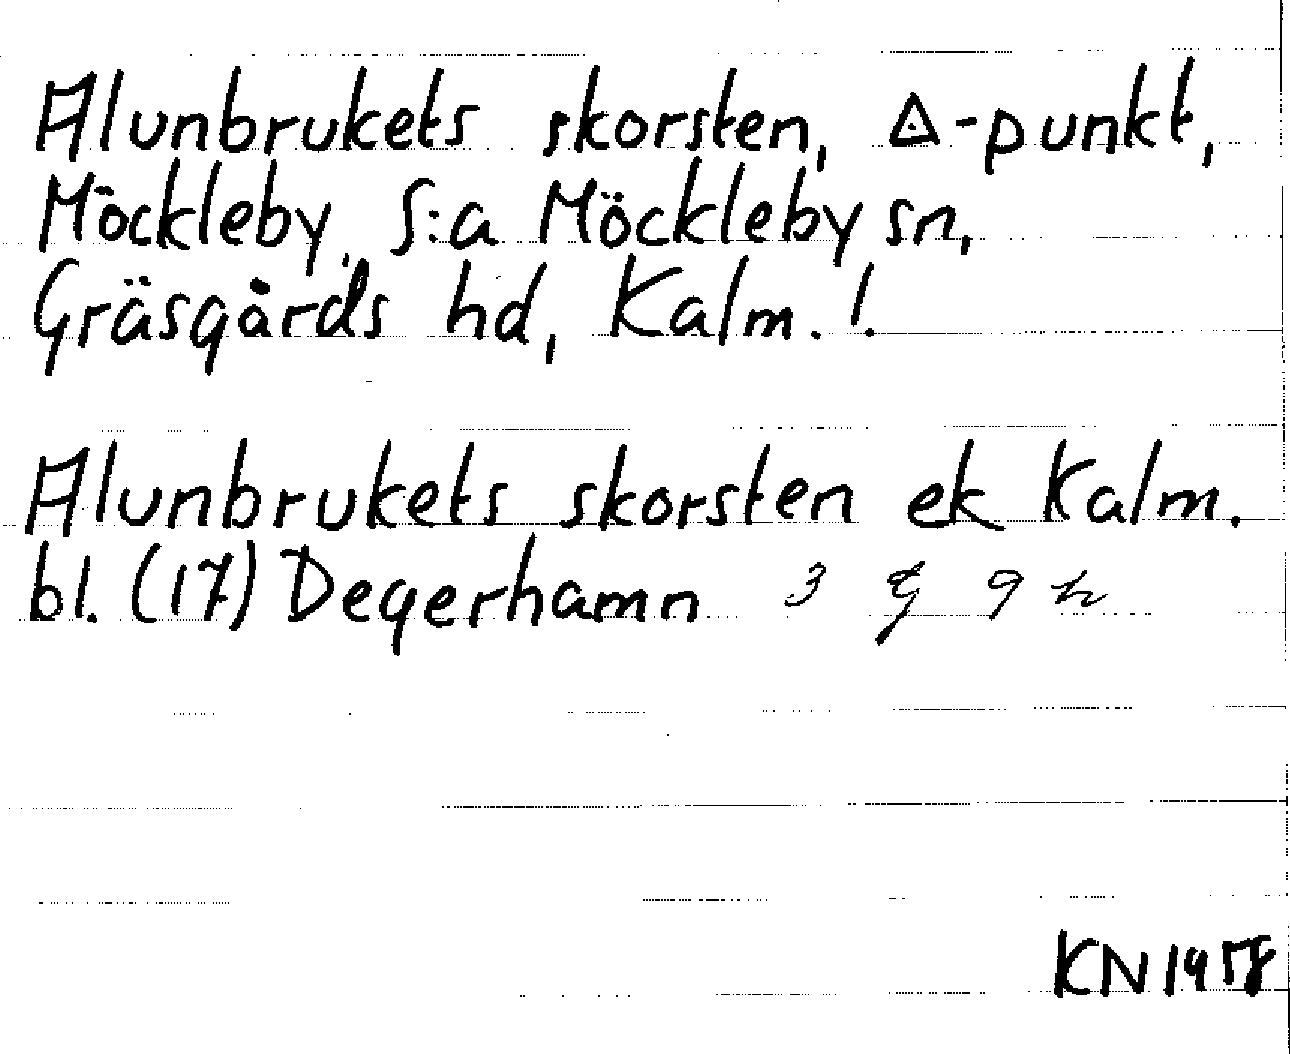 Alunbrukets skorsten, △-punkt,
Möckleby, S:a Möckleby sn,
Gräsgårds hd, Kalm. !.
Alunbrukets skorsten ek Kalm.
bl. (17) Degerhamn 3 g 9 h
KN 1958